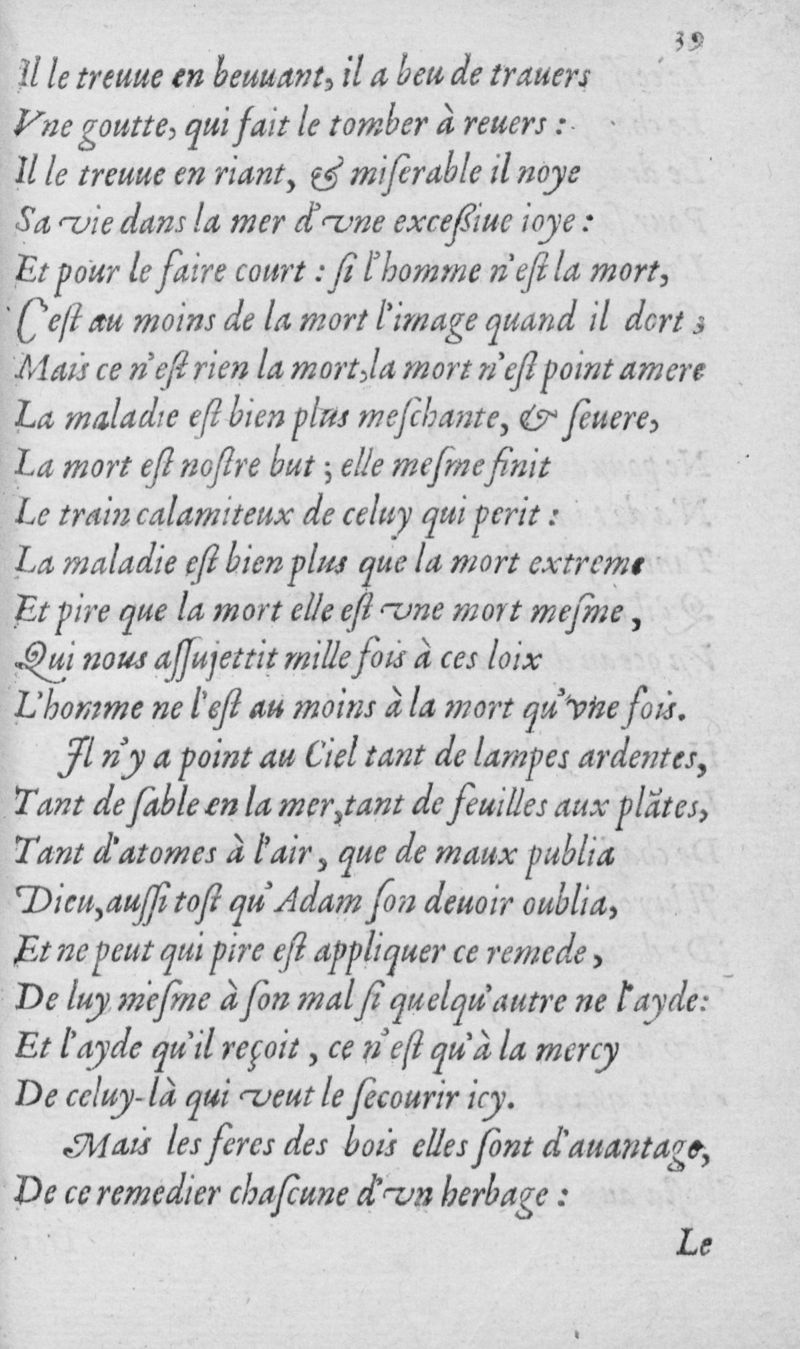 39
Il le treuue en beuuant, il a beu de trauers
Vne goutte, qui fait le tomber à reuers :
Il le treuue en riant, & miſerable il noye
Sa vie dans la mer d'vne exceßiue ioye :
Et pour le faire court : ſi l'homme n'eſt la mort,
C'eſt au moins de la mort l'image quand il dort ;
Mais ce n'eſt rien la mort, la mort n'eſt point amere
La maladie eſt bien plus meſchante, & ſeuere,
La mort eſt noſtre but ; elle meſme finit
Le train calamiteux de celuy qui perit :
La maladie eſt bien plus que la mort extreme
Et pire que la mort elle eſt vne mort meſme ,
Qui nous aſſujettit mille fois à ces loix
L'homme ne l'eſt au moins à la mort qu'vne fois.
Il n'y a point au Ciel tant de lampes ardentes,
Tant de ſable en la mer, tant de feuilles aux plātes,
Tant d'atomes à l'air , que de maux publia
Dieu, auſſi toſt qu'Adam ſon deuoir oublia,
Et ne peut qui pire eſt appliquer ce remede ,
De luy meſme à ſon mal ſi quelqu'autre ne l'ayde:
Et l'ayde qu'il reçoit , ce n'eſt qu'à la mercy
De celuy-là qui veut le ſecourir icy.
Mais les feres des bois elles ſont d'auantage,
De ce remedier chaſcune d'vn herbage :
Le